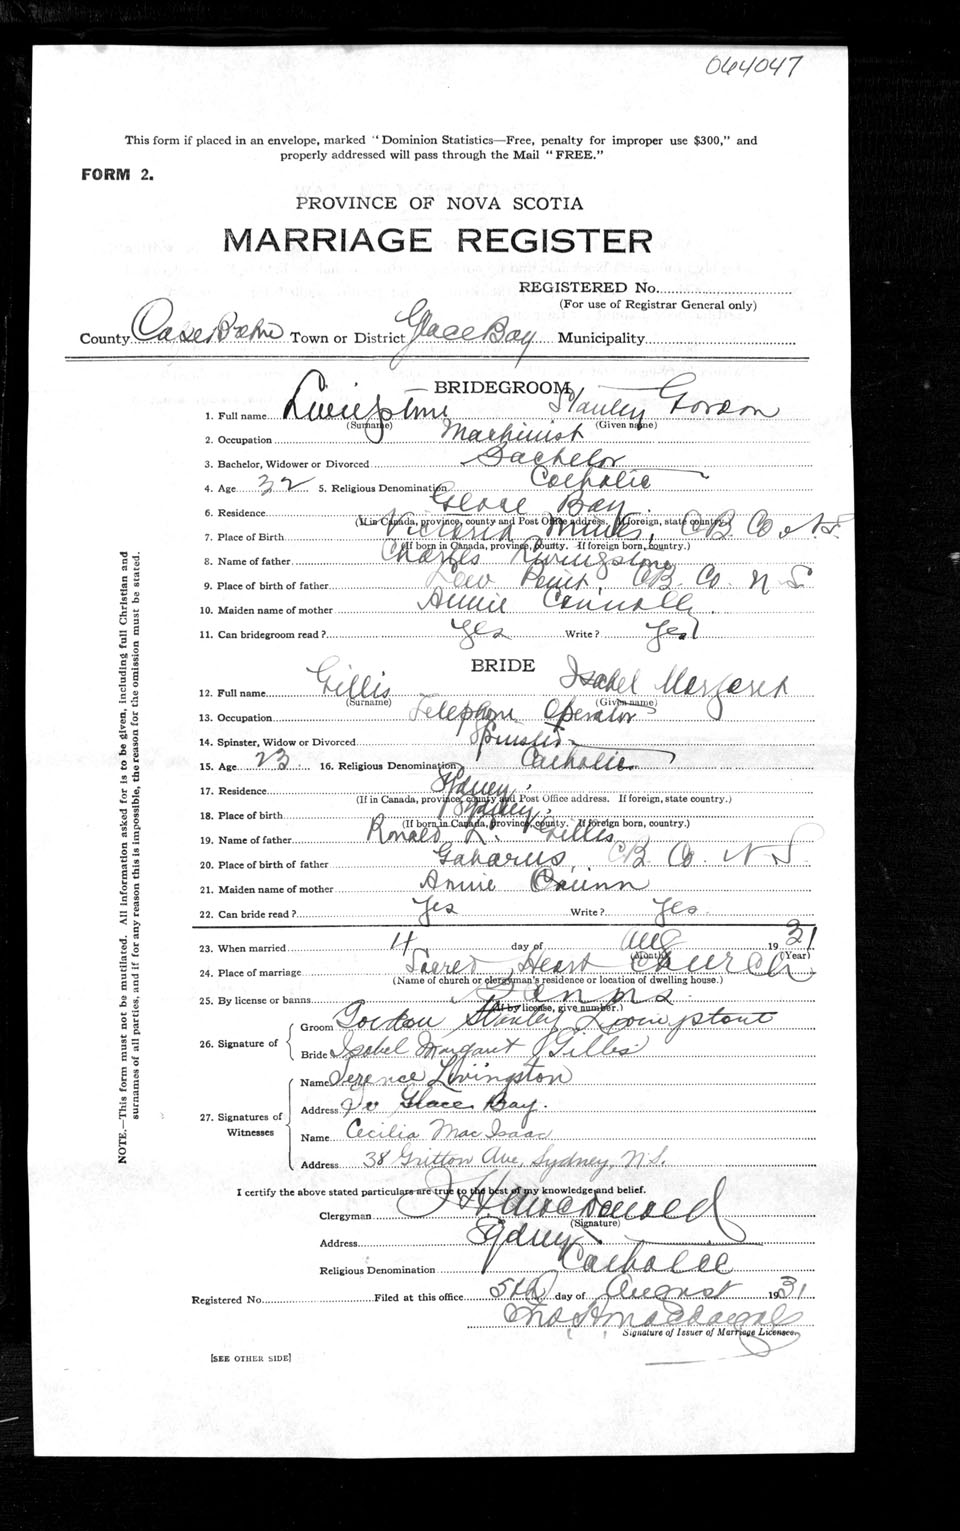 064047
This form if placed in an envelope, marked "Dominion Statistics—Free, penalty for improper use $300," and
properly addressed will pass through the Mail "FREE."
FORM 2.
PROVINCE OF NOVA SCOTIA
MARRIAGE REGISTER
REGISTERED No.
(For use of Registrar General only)
County Cape Breton Town or District Glace Bay Municipality
BRIDEGROOM
1. Full name Livingstone Stanley Gordon
(Surname) (Given name)
2. Occupation Machinist
3. Bachelor, Widower or Divorced Bachelor
4. Age 32 5. Religious Denomination Catholic
6. Residence Glace Bay
(If in Canada, province, county and Post Office address. If foreign, state country.)
7. Place of Birth Victoria Mines, CB. Co NS.
(If born in Canada, province, county. If foreign born, country.)
8. Name of father Charles Livingstone
9. Place of birth of father Low Point, CB. Co. N S
10. Maiden name of mother Annie Connolly
11. Can bridegroom read? Yes Write? Yes
BRIDE
12. Full name Gillis Isabel Margaret
(Surname) (Given name)
13. Occupation Telephone Operator
14. Spinster, Widow or Divorced Spinster
15. Age 23 16. Religious Denomination Catholic
17. Residence Sydney
(If in Canada, province, county and Post Office address. If foreign, state country.)
18. Place of birth Sydney
(If born in Canada, province, county. If foreign born, country.)
19. Name of father Ronald L. Gillis
20. Place of birth of father Gabarus, CB. Co. N S.
21. Maiden name of mother Annie Quinn
22. Can bride read? Yes Write? Yes
23. When married 4 day of Aug 1931
(Month) (Year)
24. Place of marriage Sacred Heart Church
(Name of church or clergyman's residence or location of dwelling house.)
25. By license or banns Banns
(If by license, give number.)
26. Signature of
Groom Gordon Stanley Livingstone
Bride Isobel Margaret Gillis
27. Signatures of Witnesses
Name Terence Livingston
Address Glace Bay.
Name Cecilia MacIsaac
Address 38 Gritton Ave, Sydney, N.S.
I certify the above stated particulars are true to the best of my knowledge and belief.
Clergyman Macdonald
(Signature)
Address Sydney
Religious Denomination Catholic
Registered No. Filed at this office 5th day of August 1931
Signature of Issuer of Marriage Licenses
[SEE OTHER SIDE]
NOTE.—This form must not be mutilated. All information asked for is to be given, including full Christian and
surnames of all parties, and if for any reason this is impossible, the reason for the omission must be stated.